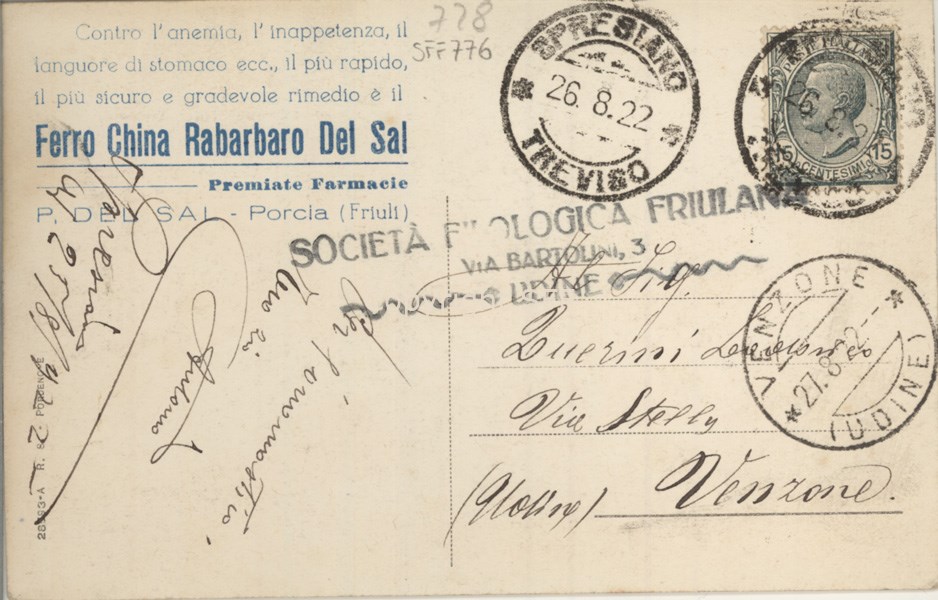 Contro l'anemia, l'inappetenza, il
languore di stomaco ecc., il più rapido,
il più sicuro e gradevole rimedio è il
Ferro China Rabarbaro Del Sal
Premiate Farmacie
P. DEL SAL - Porcia (Friuli)
728
SFF776
SPRESIANO
26.8.22
TREVISO
POSTE ITALIANE
15 CENTESIMI 15
26.8.2
SOCIETÀ FILOLOGICA FRIULANA
VIA BARTOLINI, 3
UDINE
VENZONE
27.8.22
(UDINE)
Al Sig.
Via Stella
Venzone.
(Udine)
Spresiano
Antonio
R. S. PORDENONE